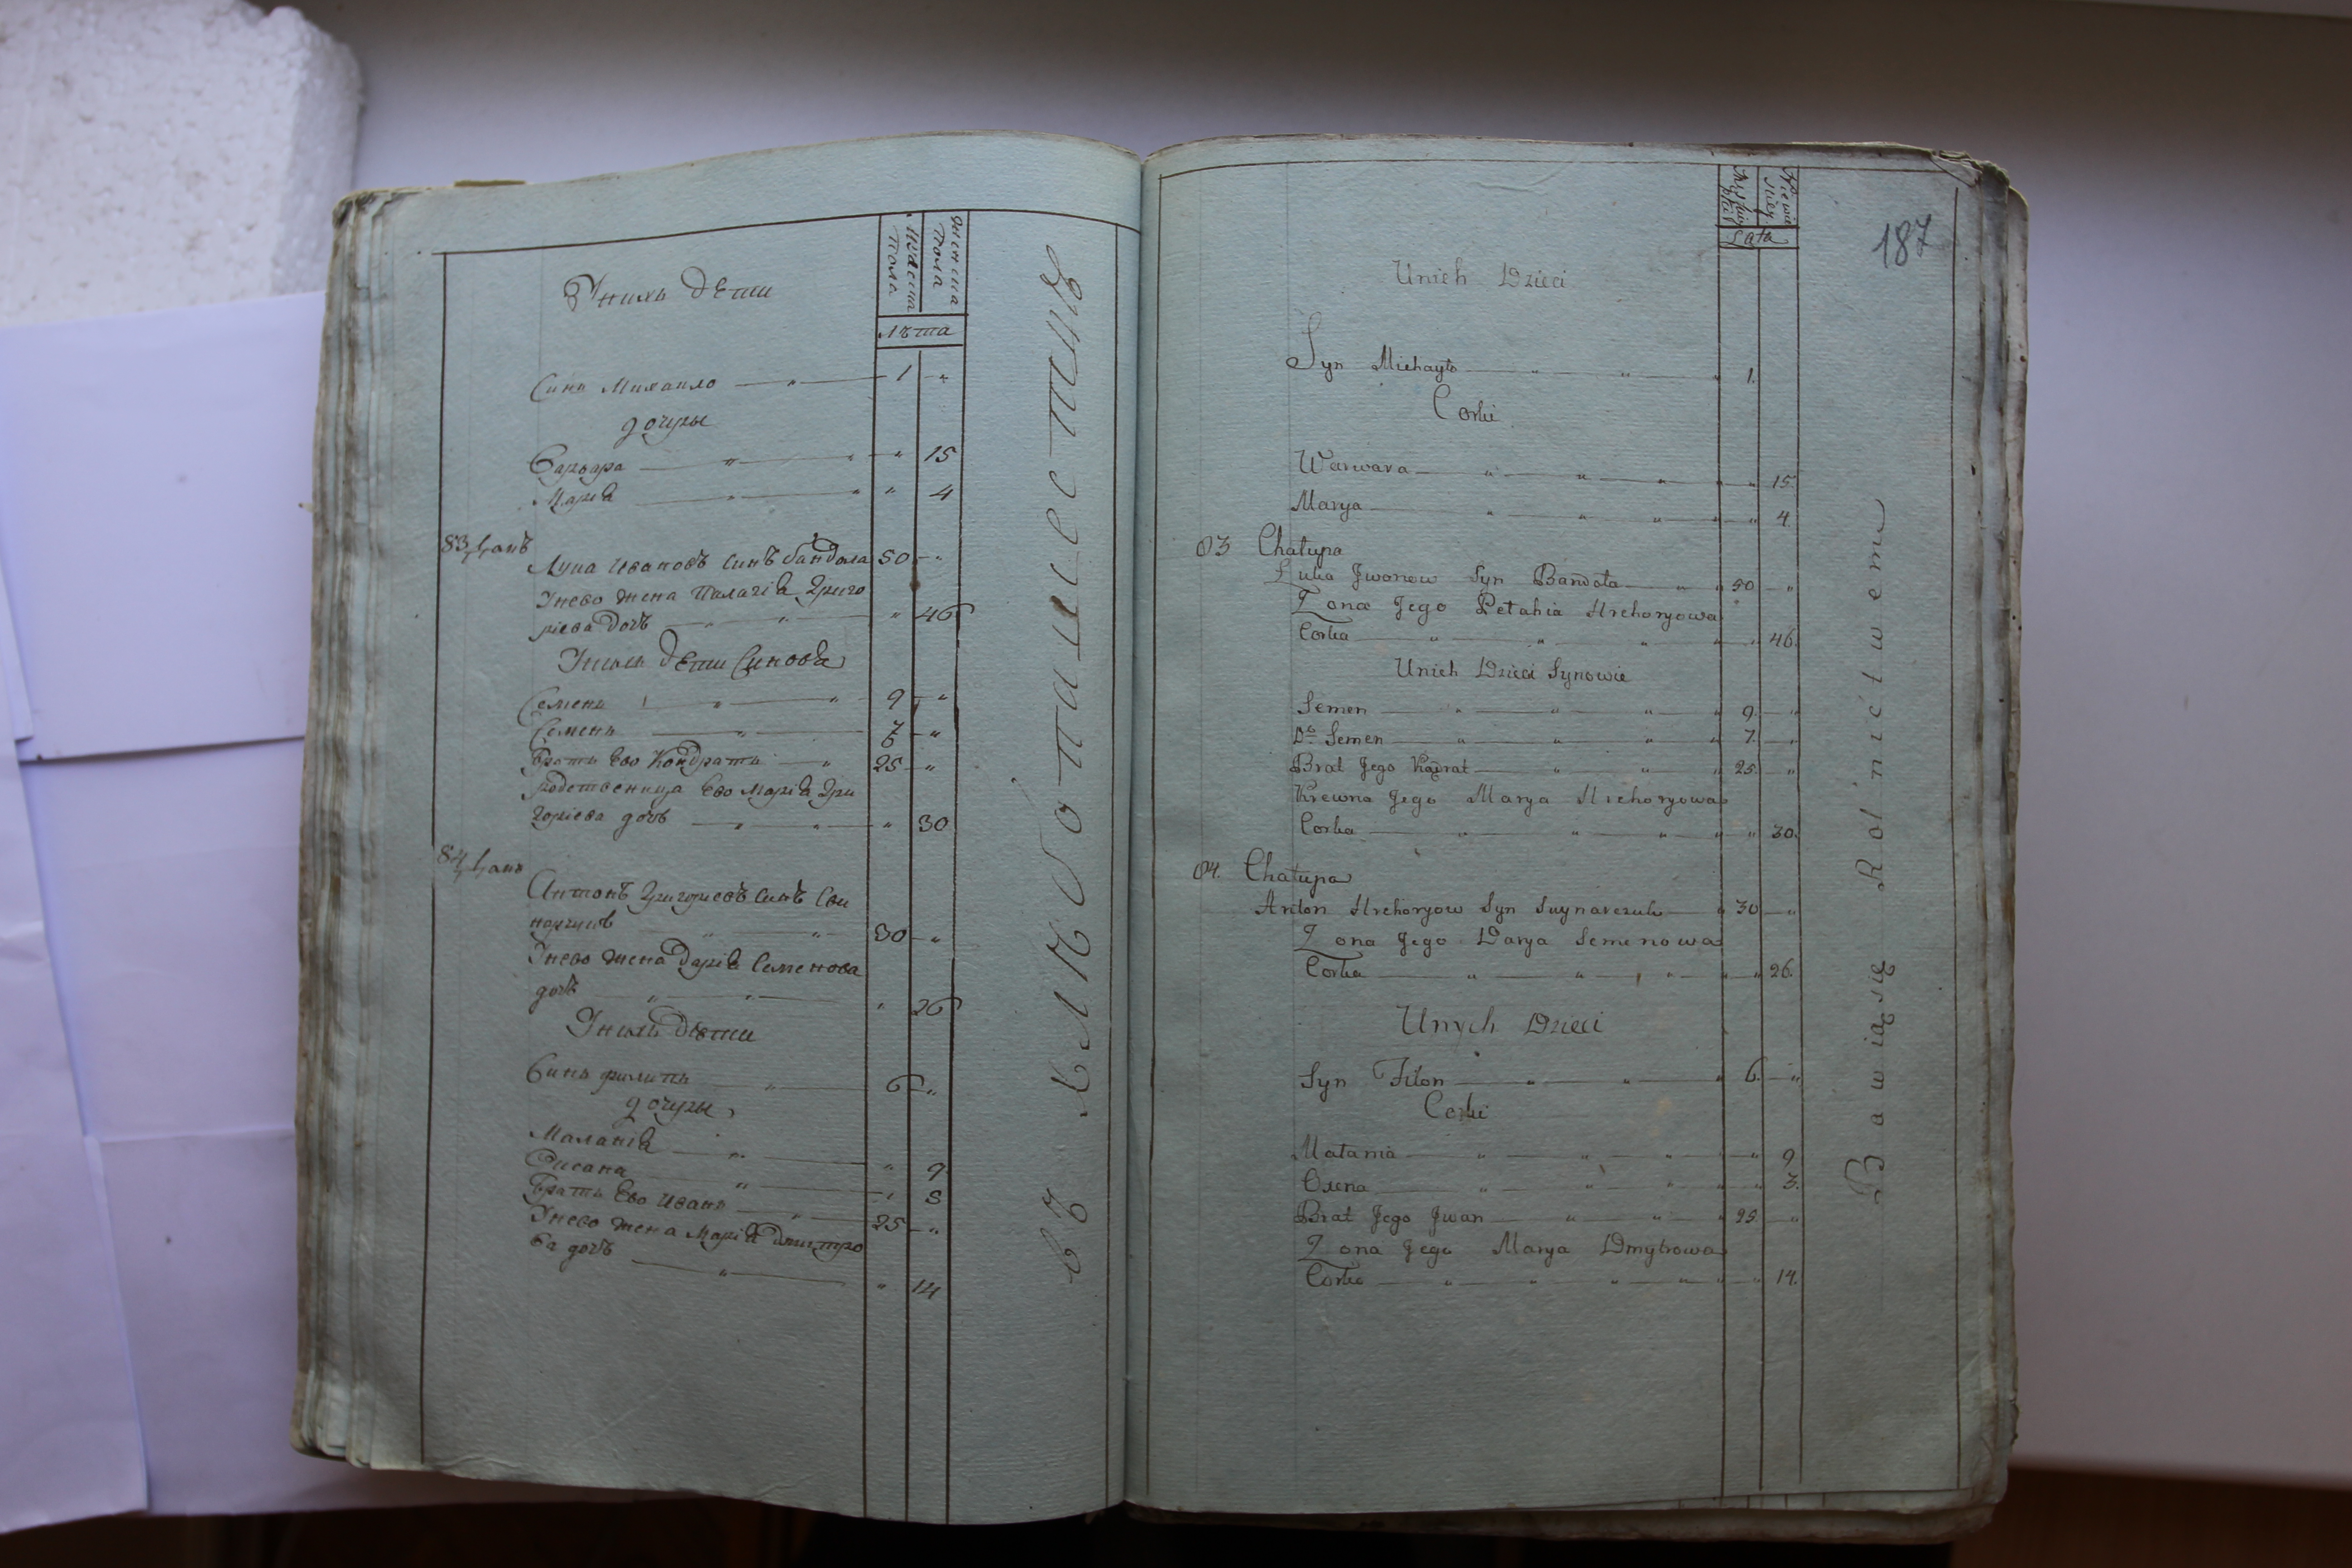 мужеска пола
женска пола
лѣта
Унихъ дети
Синъ Михаило — „ — 1 — „
дочеры
Варвара — „ — „ — „ 15
Марія — „ — „ „ 4
83. Хата
Лука Ивановъ синъ Бандола 50 — „
Унево жена Палагія Григо
риева дочь — „ — „ — „ 46
Унихъ дети Синовя
Семенъ — „ — „ 9 — „
Семенъ — „ — 7 — „
братъ Ево Кондратъ — „ 25 — „
родственица Ево Марія Гри
гориева дочь — „ — „ — „ 30
84. Хата
Антонъ Григориевъ синъ Сви
нарчукъ „ — „ — 30 — „
Унево жена Дарія Семенова
дочь — „ — „ — „ 26
Унихъ дѣти
Синъ Филипъ — „ — 6 — „
дочеры
Маланія — „ — „ 9
„ — „ 3
братъ Ево Иванъ — „ — 25 — „
Унево жена Марія Дмитро
ва дочь — „ — „ 14
въ хлѣбопашестве
187
Męskiej płci
Niewieściey
Lata
Unich Dzieci
Syn Michayło — „ — „ — „ 1.
Corki
Warwara — „ — „ — „ — „ — „ 15.
Marya — „ — „ — „ — „ 4.
83 Chałupa
Łuka Jwanow Syn Bandoła — „ — „ 50 — „
Zona Jego Pełahia Hrehoryowa
Corka — „ — „ — „ — „ — „ 46.
Unich Dzieci Synowie
Semen — „ — „ — „ — „ 9. — „
Do Semen — „ — „ — „ — „ 7. — „
Brat Jego Kądrat — „ — „ — „ 25. — „
Krewna Jego Marya Hrehoryowa
Corka — „ — „ — „ — „ — „ 30.
84. Chałupa
Anton Hrehoryow Syn Swynarczuk — „ 30 — „
Zona Jego Darya Semenowa
Corka — „ — „ — „ — „ — „ 26.
Unych Dzieci
Syn Filon — „ — „ — „ 6. — „
Corki
Małania — „ — „ — „ — „ — „ 9
Oxena — „ — „ — „ — „ — „ 3.
Brat Jego Jwan — „ — „ — „ 25 — „
Zona Jego Marya Dmytrowa
Corka — „ — „ — „ — „ — „ 14.
Bawią się Rolnictwem